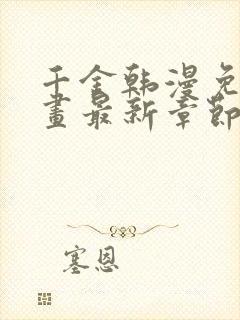 千金韩漫免
画最新章节
塞恩